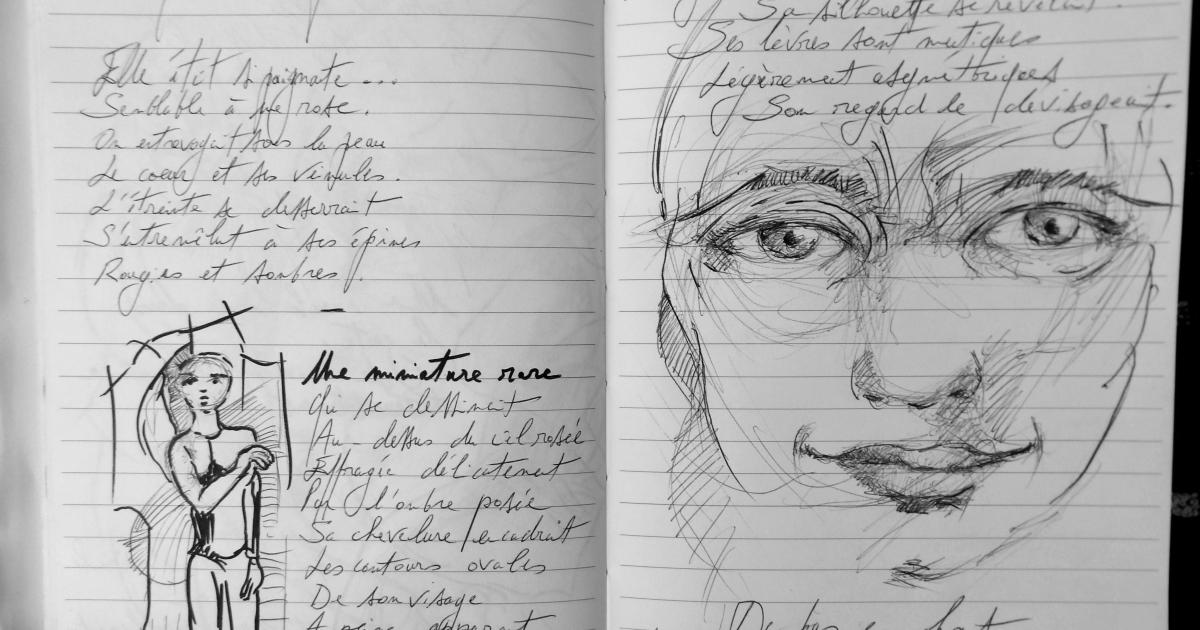 Elle étét si poignate ...
Semblable à une rose.
On entrevoyait sous la peau
Le coeur et ses veinules.
L'étreinte se desserrait
S'entremêlait à ses épines
Rougies et sombres.
Une miniature rare
Qui se dessinait
Au-dessus du ciel rosée
Effragée délicatement
Par l'ombre posée
Sa chevelure encadrait
Les contours ovales
De son visage
A peine apparent
Sa silhouette se révélait.
Ses lèvres sont mutiques
Légèrement asymétriques
Son regard le dévisageait.
De bas en haut